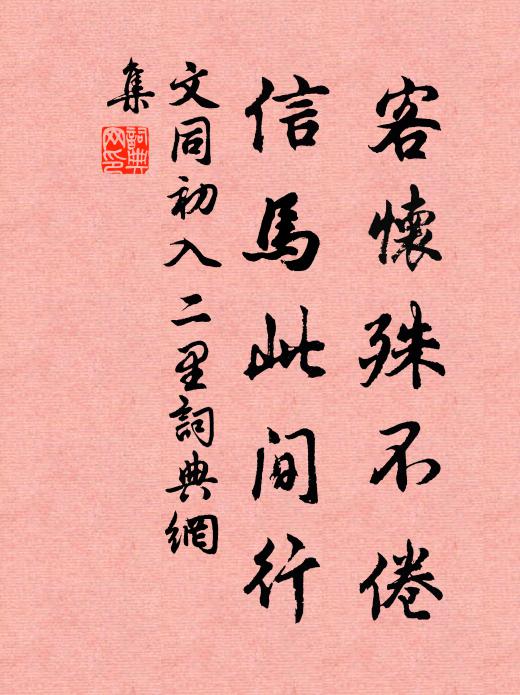 客懷殊不倦
信馬此間行
文同初入二里詞典網
集
詞典
网印